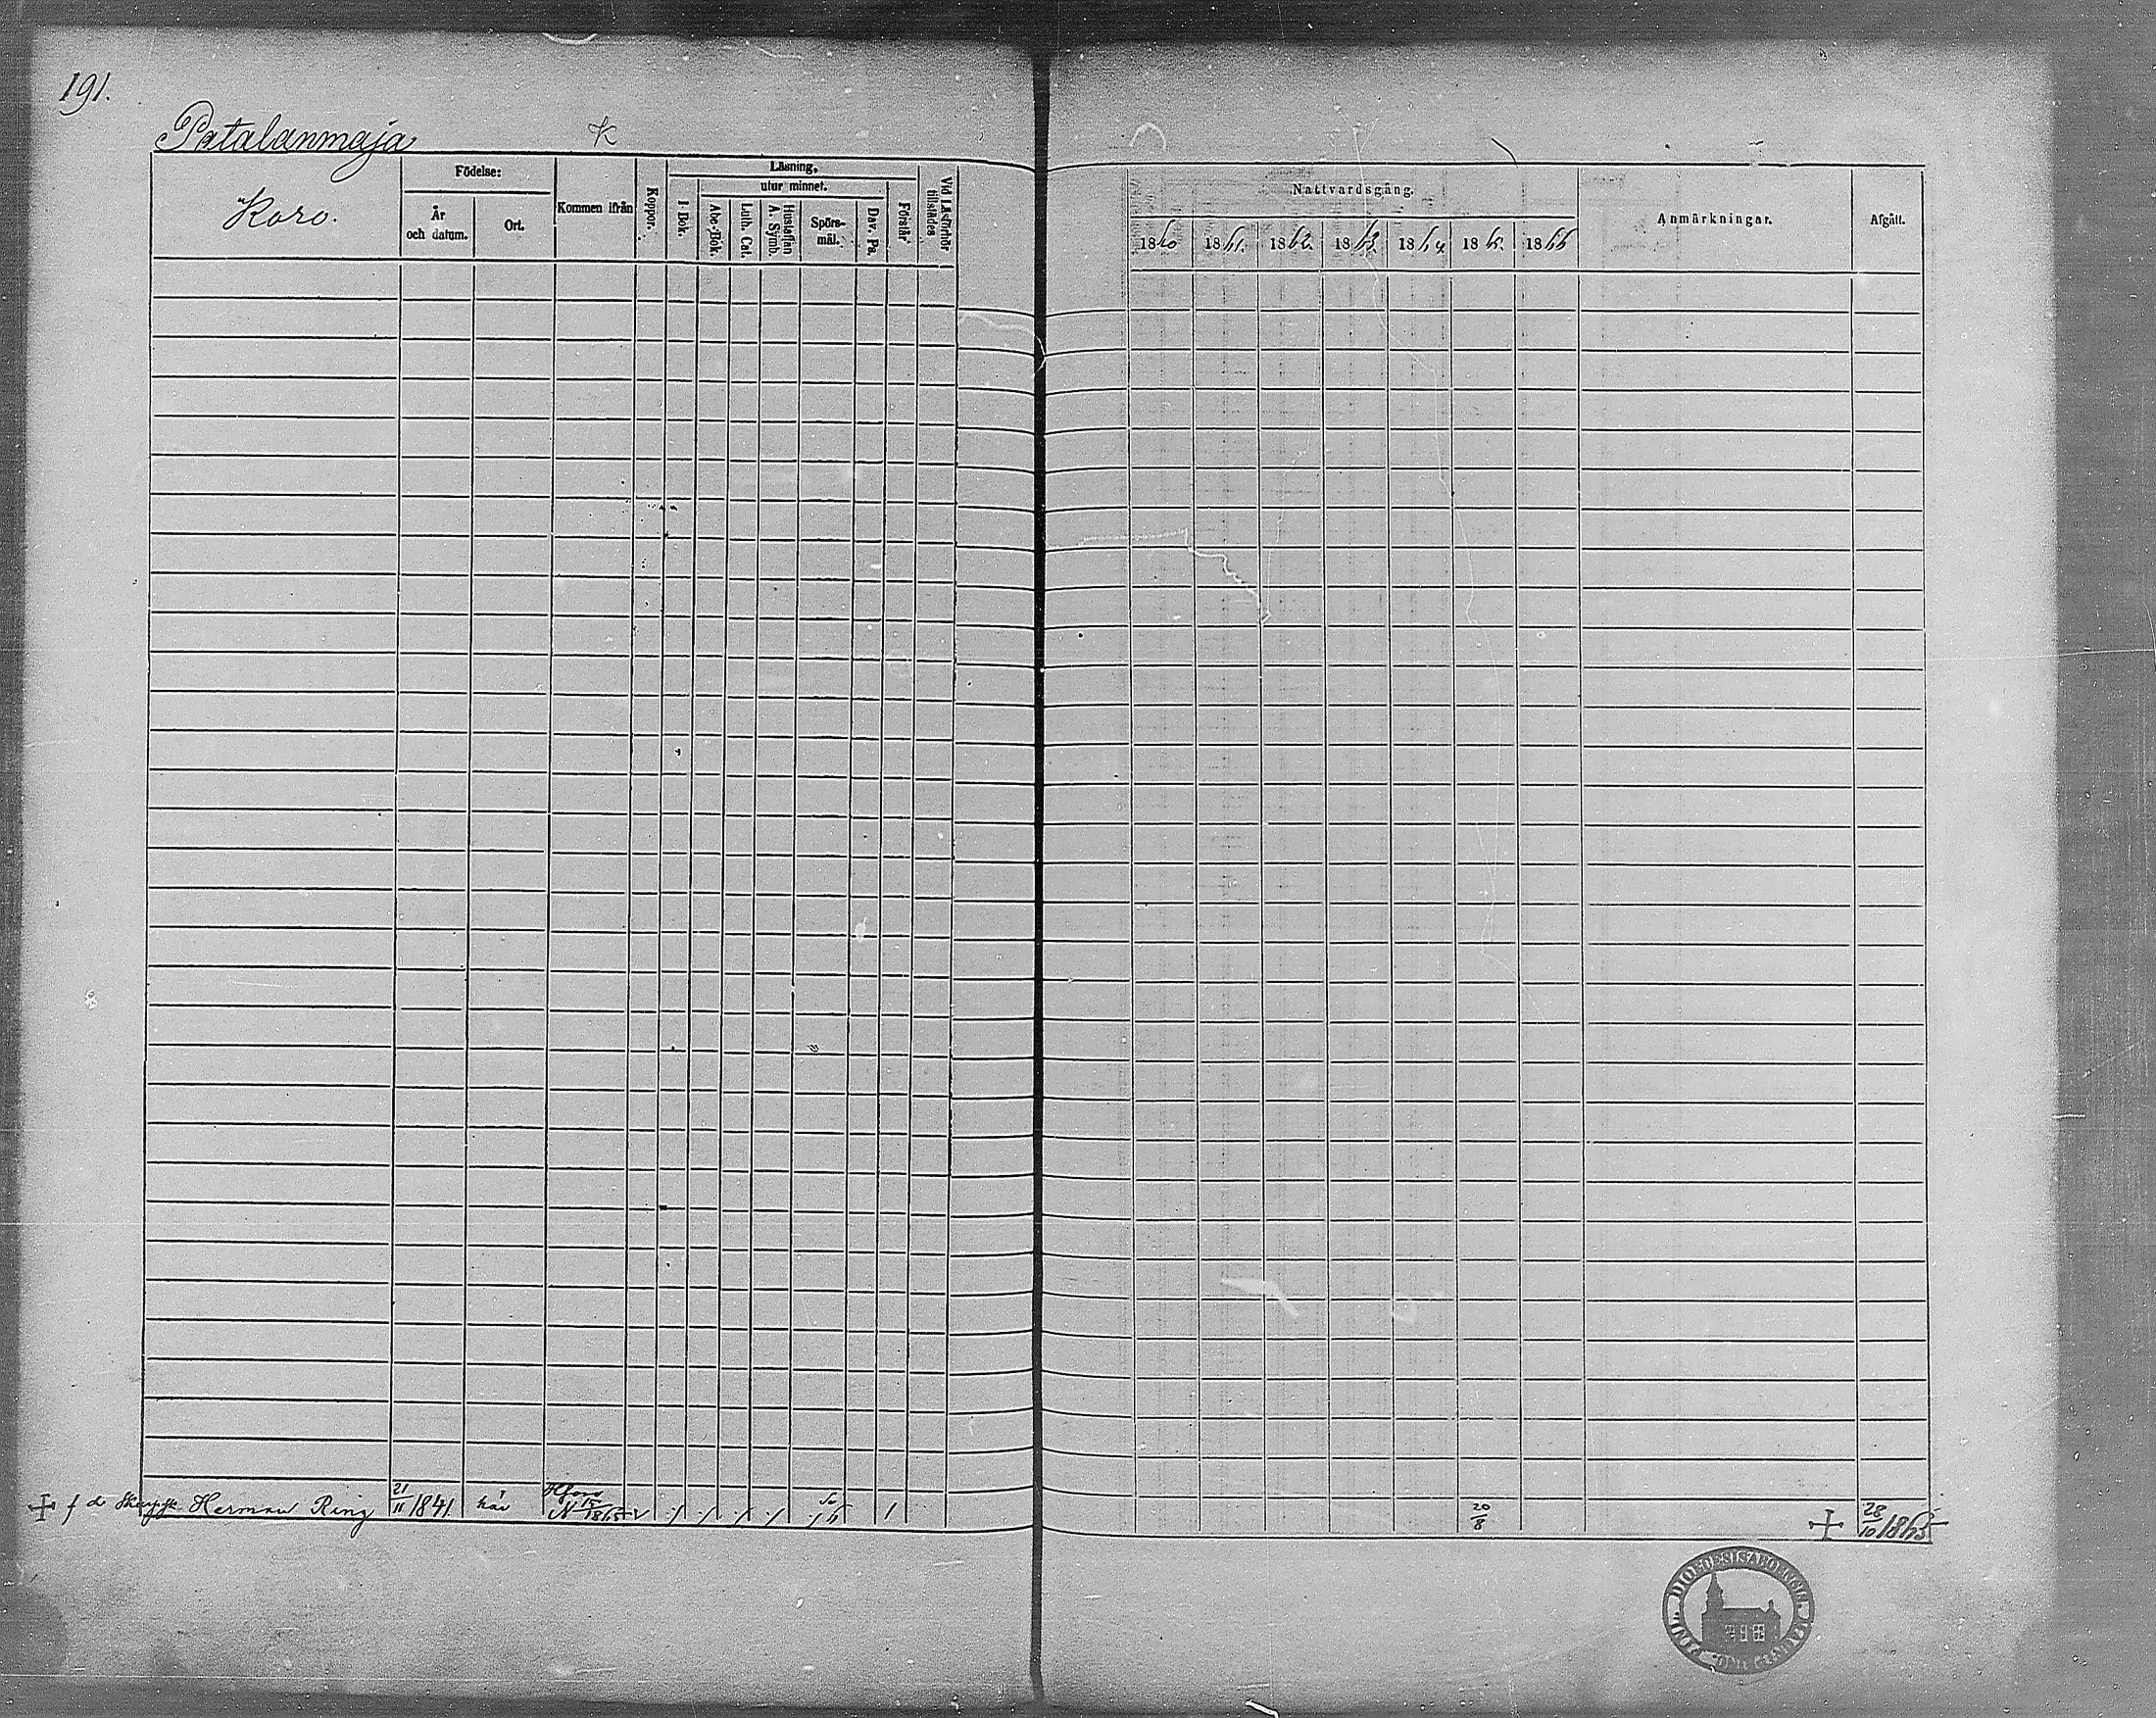 191.
Patalanmaja K
Koro.
Födelse:
År
och datum.
Ort.
Kommen ifrån
Koppor.
Läsning,
utur minnet.
I Bok.
Abc-Bok.
Luth. Cat.
Hustaflan
A. Symb.
Spörs-
mål.
Dav. Ps.
Förstår
Vid Läsförhör
tillstädes
Nattvardsgång.
1860 1861. 1862. 1863. 1864. 1865. 1866
Anmärkningar.
Afgått.
f d Herman Ring 21/11 1841. här Hfors N 15/ 1865 1 20/8 28/10 1865